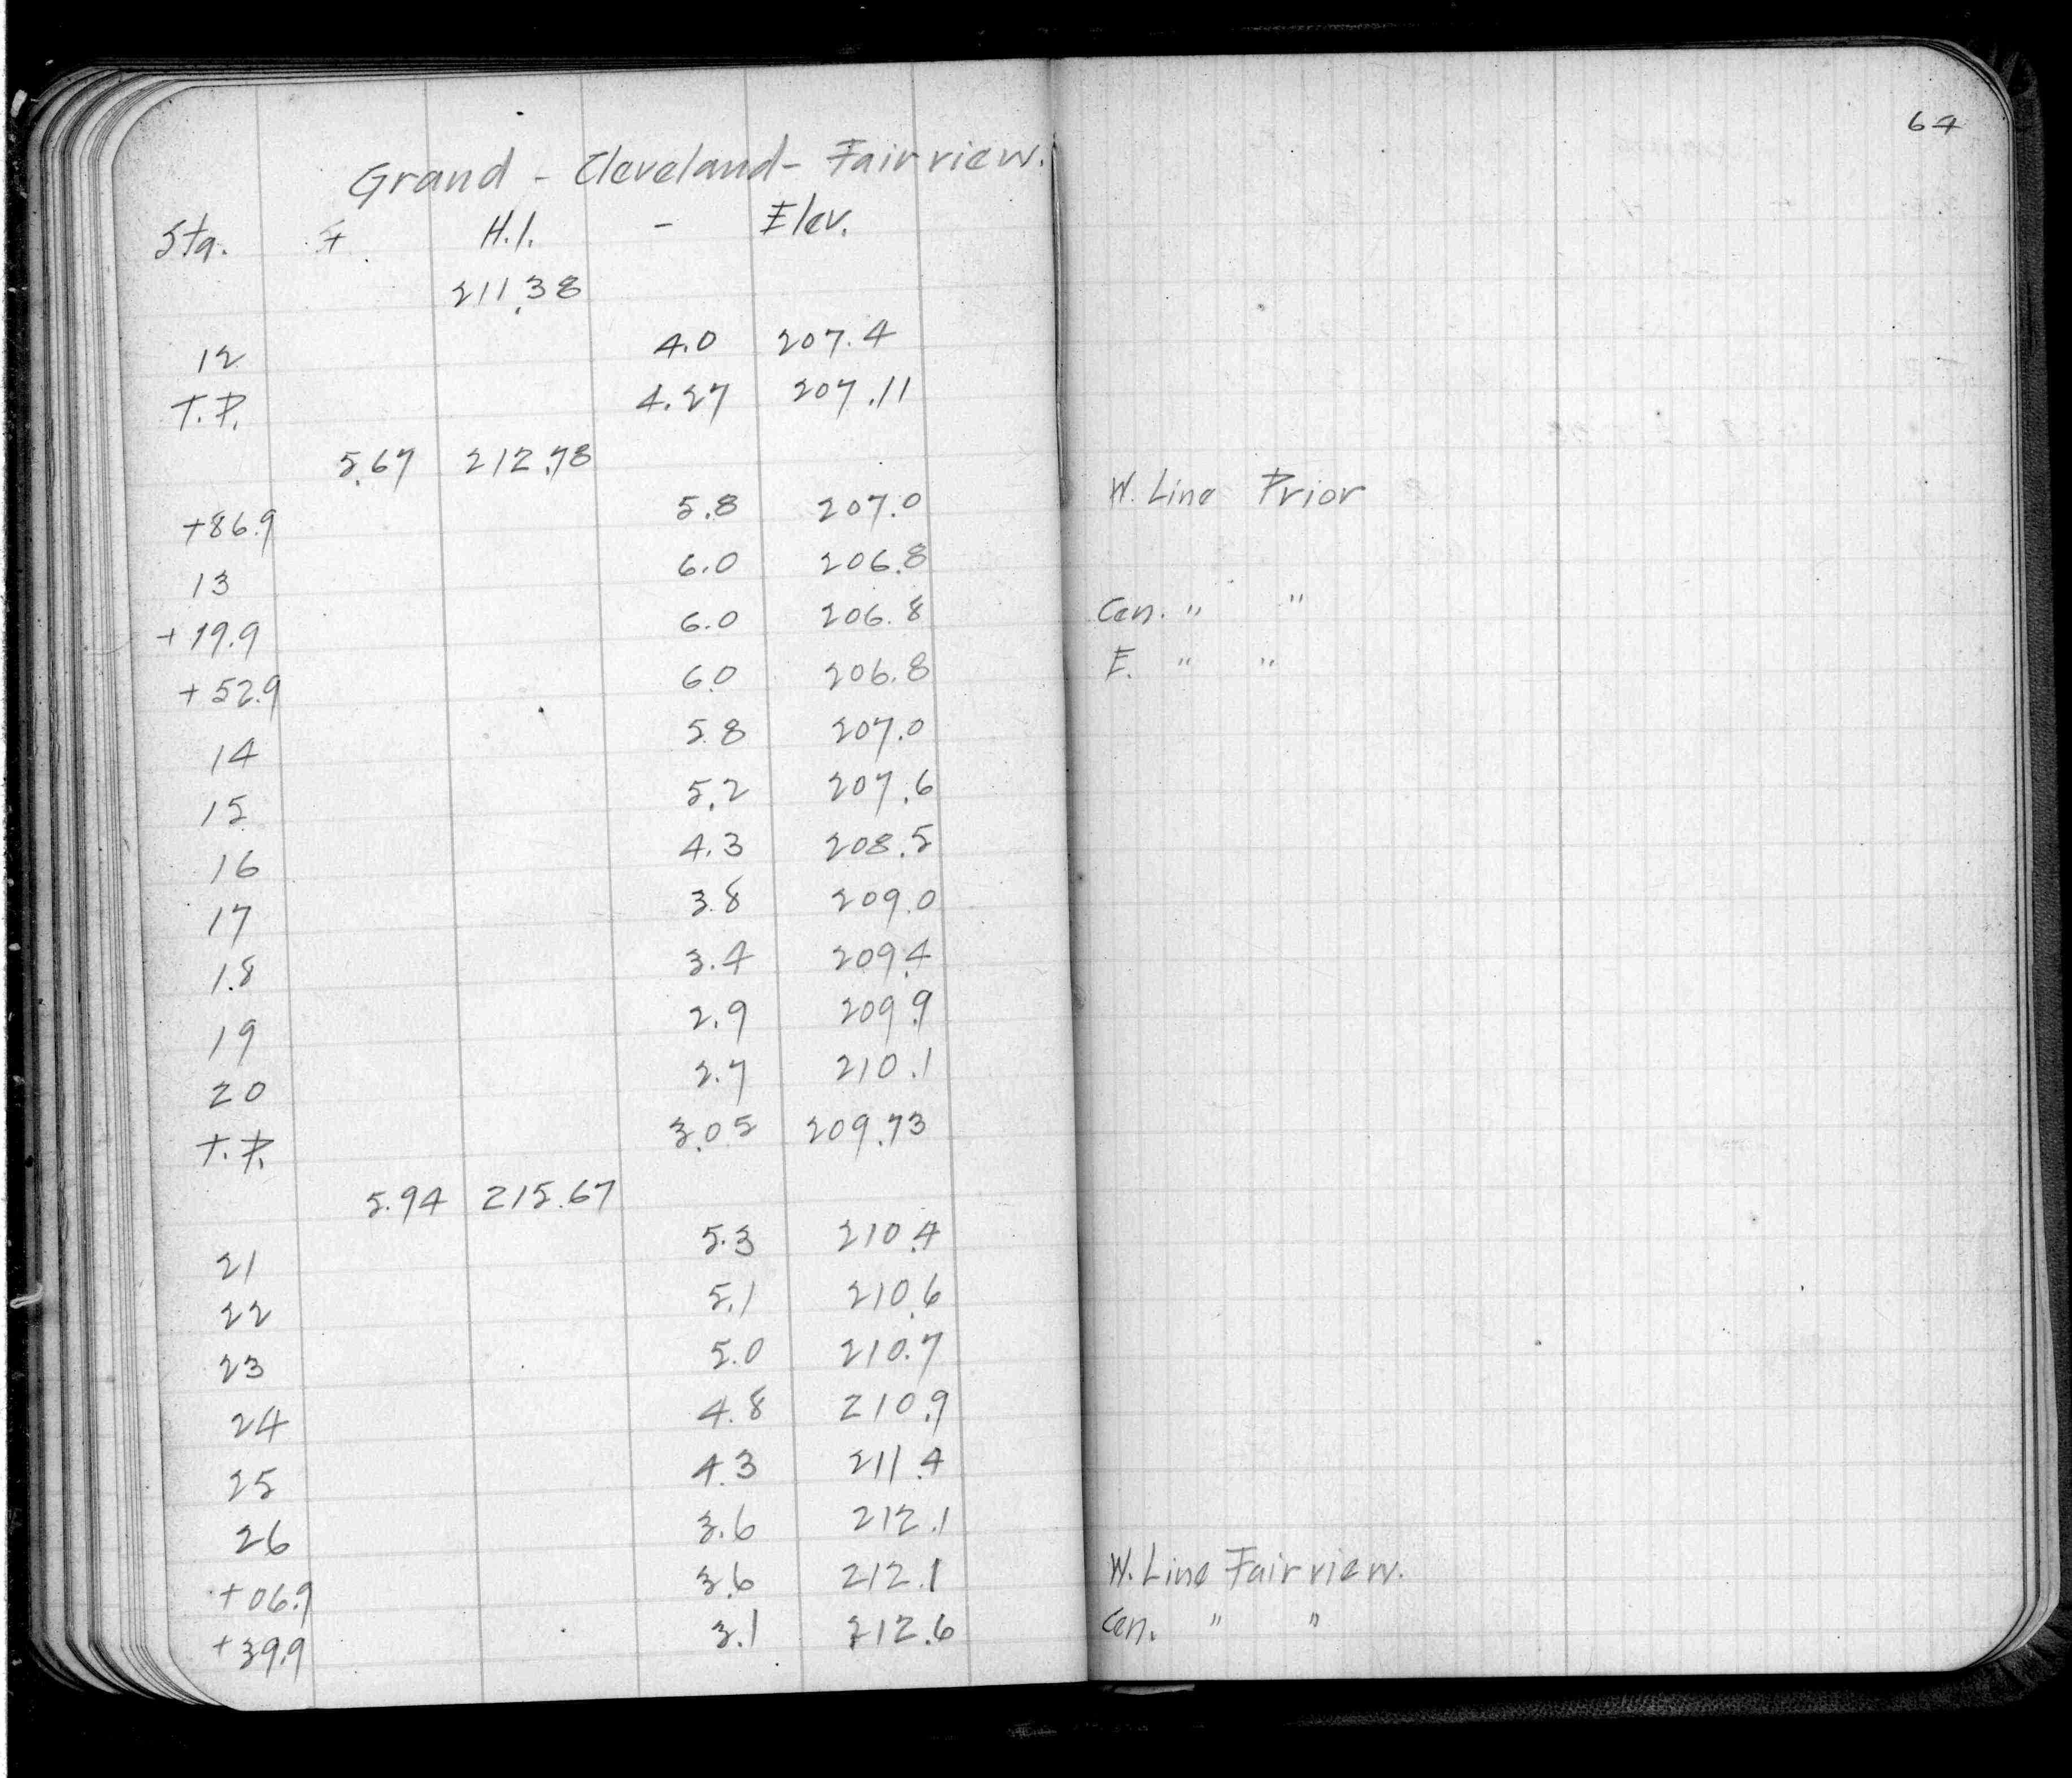 64
Grand - Cleveland - Fairview.
Sta. + H.I. - Elev.
211.38
12 4.0 207.4
T.P. 4.27 207.11
5.67 212.78
+86.9 5.8 207.0 W. Line Prior
13 6.0 206.8
+19.9 6.0 206.8 Cen. " "
+52.9 6.0 206.8 E. " "
14 5.8 207.0
15 5.2 207.6
16 4.3 208.5
17 3.8 209.0
18 3.4 209.4
19 2.9 209.9
20 2.7 210.1
T.P. 3.05 209.73
5.94 215.67
21 5.3 210.4
22 5.1 210.6
23 5.0 210.7
24 4.8 210.9
25 4.3 211.4
26 3.6 212.1
+06.9 3.6 212.1 W. Line Fairview.
+39.9 3.1 212.6 Cen. " "